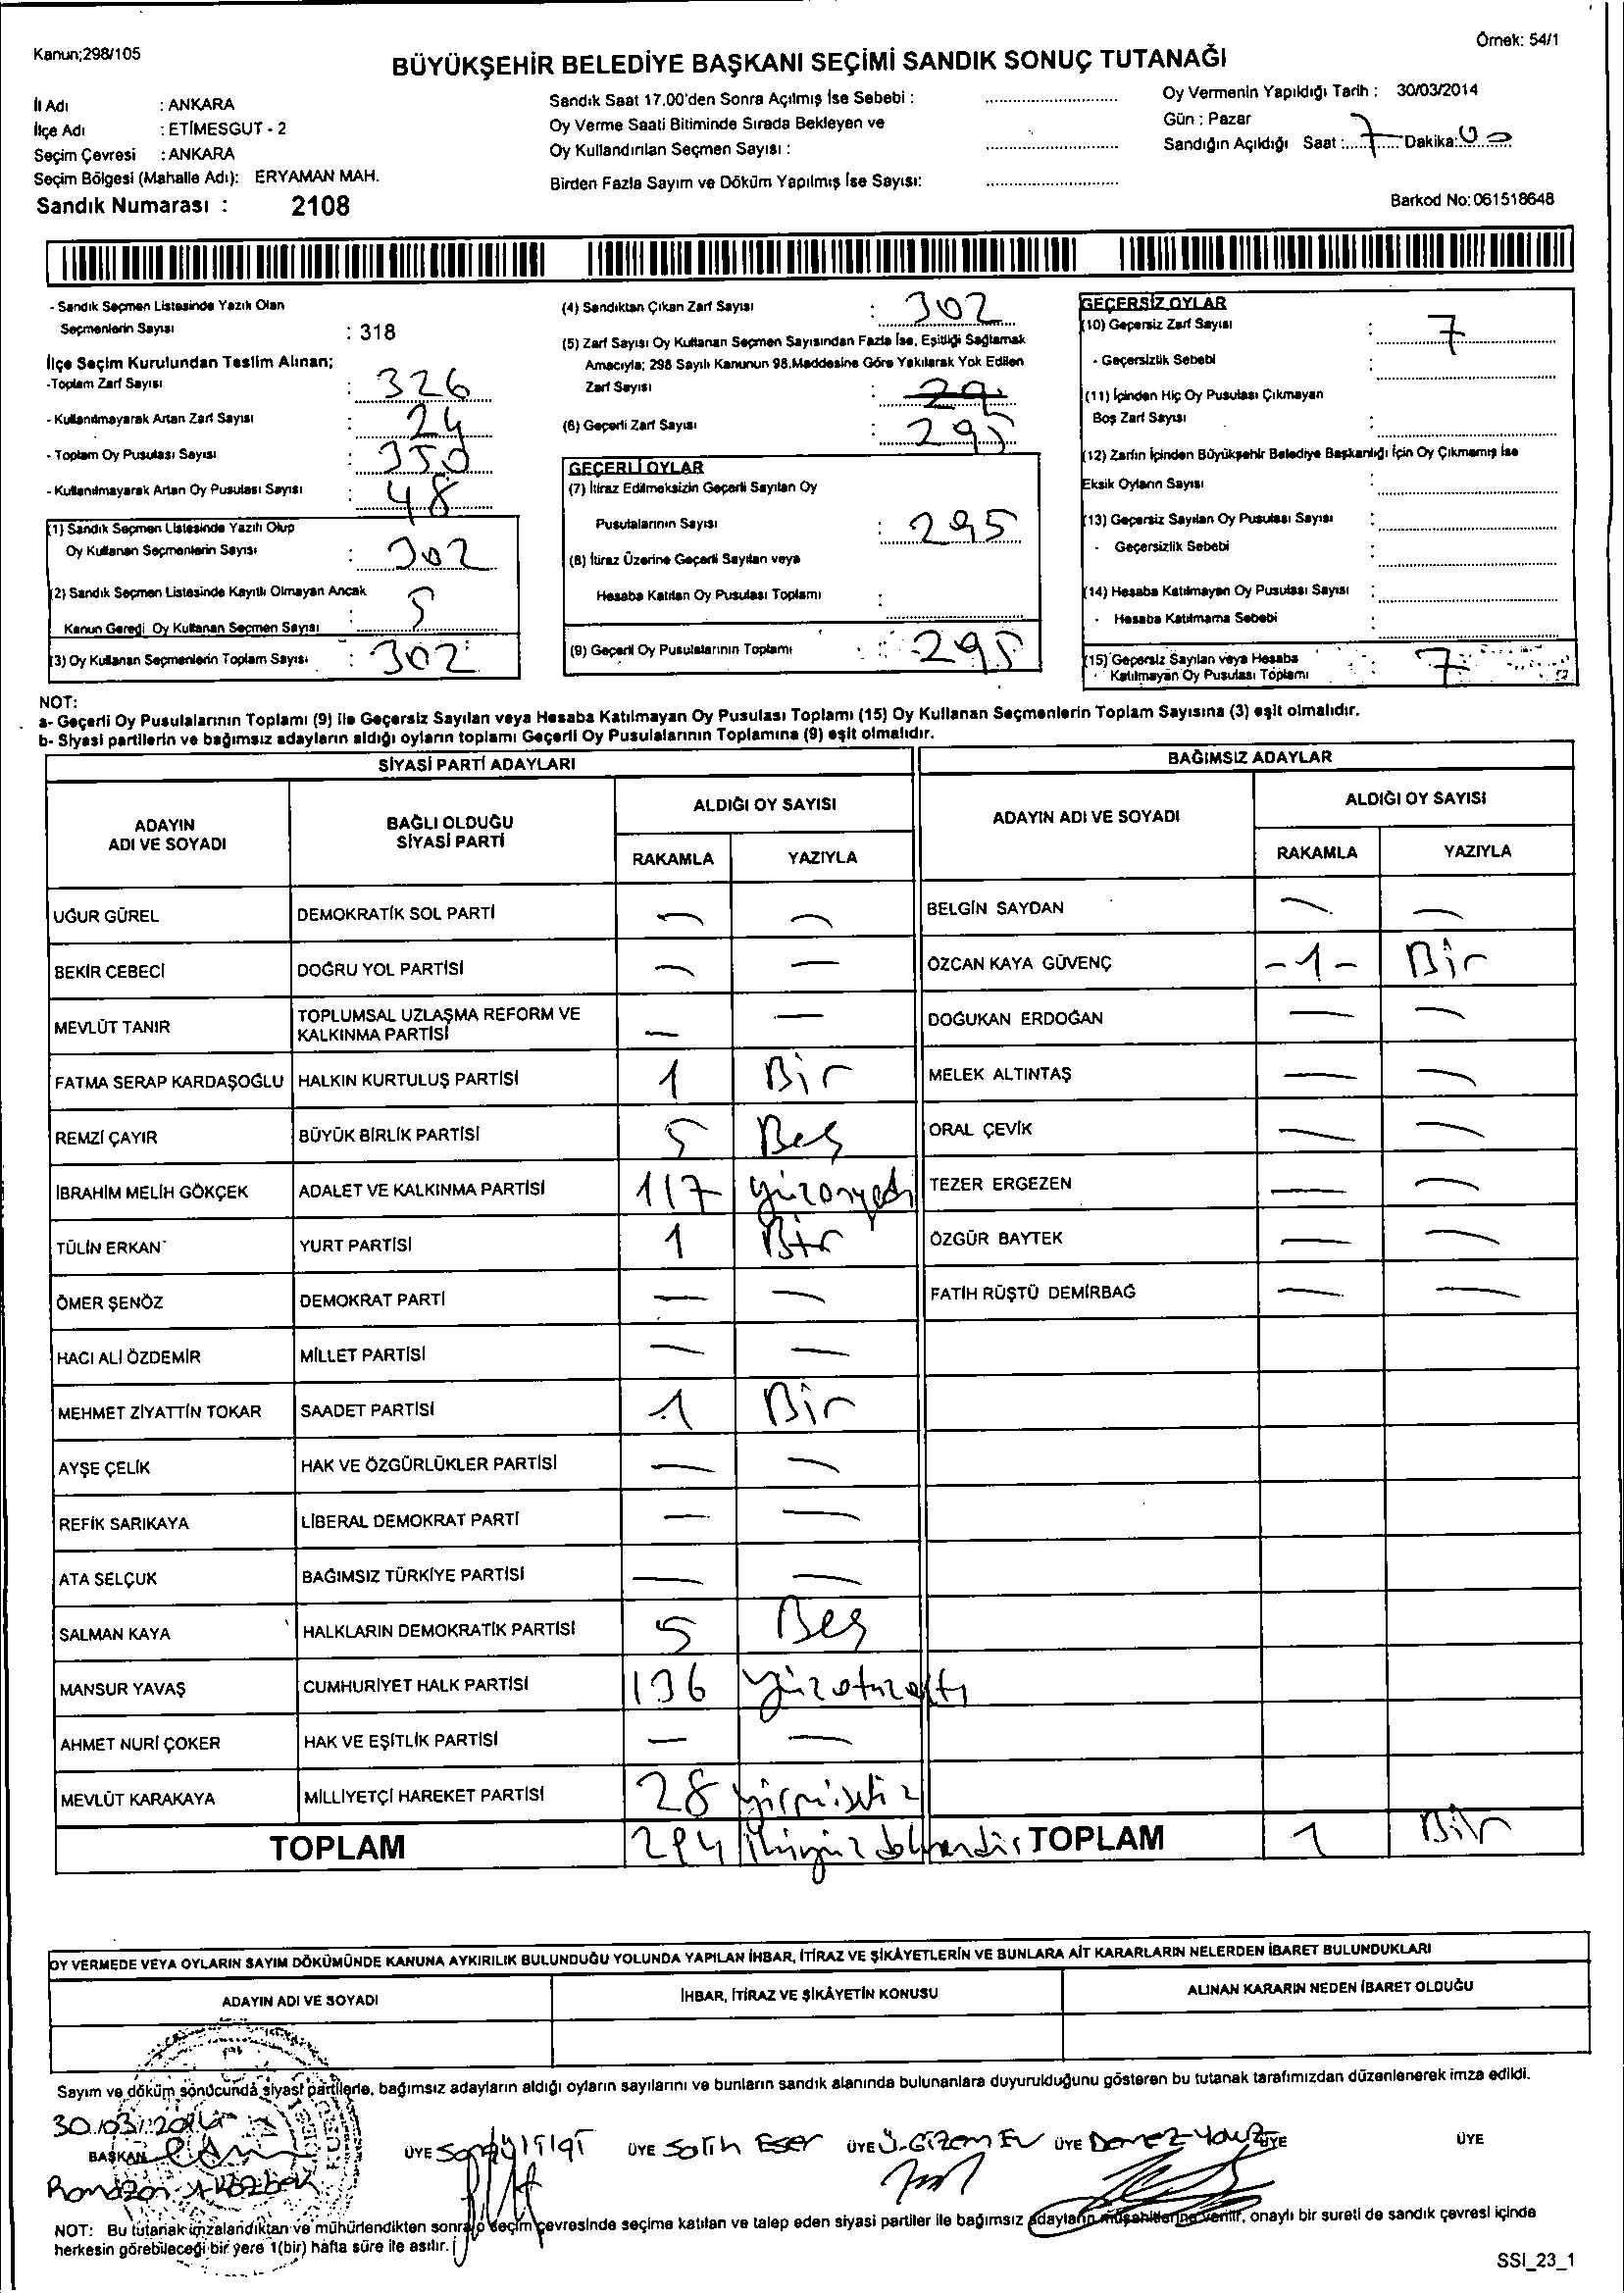 Kanun;298/105
Örnek: 54/1
BÜYÜKŞEHİR BELEDİYE BAŞKANI SEÇİMİ SANDIK SONUÇ TUTANAĞI
İl Adı : ANKARA
İlçe Adı : ETİMESGUT - 2
Seçim Çevresi : ANKARA
Seçim Bölgesi (Mahalle Adı): ERYAMAN MAH.
Sandık Numarası : 2108
Sandık Saat 17.00'den Sonra Açılmış İse Sebebi :
Oy Verme Saati Bitiminde Sırada Bekleyen ve
Oy Kullandırılan Seçmen Sayısı :
Birden Fazla Sayım ve Döküm Yapılmış İse Sayısı:
Oy Vermenin Yapıldığı Tarih : 30/03/2014
Gün : Pazar
Sandığın Açıldığı Saat : 7 Dakika: 00
Barkod No: 061518648
- Sandık Seçmen Listesinde Yazılı Olan
Seçmenlerin Sayısı : 318
İlçe Seçim Kurulundan Teslim Alınan;
-Toplam Zarf Sayısı : 326
- Kullanılmayarak Artan Zarf Sayısı : 24
- Toplam Oy Pusulası Sayısı : 350
- Kullanılmayarak Artan Oy Pusulası Sayısı : 48
(1) Sandık Seçmen Listesinde Yazılı Olup
Oy Kullanan Seçmenlerin Sayısı : 302
(2) Sandık Seçmen Listesinde Kayıtlı Olmayan Ancak
Kanun Gereği Oy Kullanan Seçmen Sayısı : 5
(3) Oy Kullanan Seçmenlerin Toplam Sayısı : 302
(4) Sandıktan Çıkan Zarf Sayısı : 302
(5) Zarf Sayısı Oy Kullanan Seçmen Sayısından Fazla İse, Eşitliği Sağlamak
Amacıyla; 298 Sayılı Kanunun 98.Maddesine Göre Yakılarak Yok Edilen
Zarf Sayısı :
(6) Geçerli Zarf Sayısı : 295
GEÇERLİ OYLAR
(7) İtiraz Edilmeksizin Geçerli Sayılan Oy
Pusulalarının Sayısı : 295
(8) İtiraz Üzerine Geçerli Sayılan veya
Hesaba Katılan Oy Pusulası Toplamı :
(9) Geçerli Oy Pusulalarının Toplamı : 295
GEÇERSİZ OYLAR
(10) Geçersiz Zarf Sayısı : 7
- Geçersizlik Sebebi :
(11) İçinden Hiç Oy Pusulası Çıkmayan
Boş Zarf Sayısı :
(12) Zarfın İçinden Büyükşehir Belediye Başkanlığı İçin Oy Çıkmamış İse
Eksik Oyların Sayısı :
(13) Geçersiz Sayılan Oy Pusulası Sayısı :
- Geçersizlik Sebebi :
(14) Hesaba Katılmayan Oy Pusulası Sayısı :
- Hesaba Katılmama Sebebi :
(15) Geçersiz Sayılan veya Hesaba
Katılmayan Oy Pusulası Toplamı : 7
NOT:
a- Geçerli Oy Pusulalarının Toplamı (9) ile Geçersiz Sayılan veya Hesaba Katılmayan Oy Pusulası Toplamı (15) Oy Kullanan Seçmenlerin Toplam Sayısına (3) eşit olmalıdır.
b- Siyasi partilerin ve bağımsız adayların aldığı oyların toplamı Geçerli Oy Pusulalarının Toplamına (9) eşit olmalıdır.
SİYASİ PARTİ ADAYLARI
ADAYIN ADI VE SOYADI BAĞLI OLDUĞU SİYASİ PARTİ ALDIĞI OY SAYISI
RAKAMLA YAZIYLA
UĞUR GÜREL DEMOKRATİK SOL PARTİ — —
BEKİR CEBECİ DOĞRU YOL PARTİSİ — —
MEVLÜT TANIR TOPLUMSAL UZLAŞMA REFORM VE KALKINMA PARTİSİ — —
FATMA SERAP KARDAŞOĞLU HALKIN KURTULUŞ PARTİSİ 1 Bir
REMZİ ÇAYIR BÜYÜK BİRLİK PARTİSİ 5 Beş
İBRAHİM MELİH GÖKÇEK ADALET VE KALKINMA PARTİSİ 117 yüzonyedi
TÜLİN ERKAN YURT PARTİSİ 1 Bir
ÖMER ŞENÖZ DEMOKRAT PARTİ — —
HACI ALİ ÖZDEMİR MİLLET PARTİSİ — —
MEHMET ZİYATTİN TOKAR SAADET PARTİSİ 1 Bir
AYŞE ÇELİK HAK VE ÖZGÜRLÜKLER PARTİSİ — —
REFİK SARIKAYA LİBERAL DEMOKRAT PARTİ — —
ATA SELÇUK BAĞIMSIZ TÜRKİYE PARTİSİ — —
SALMAN KAYA HALKLARIN DEMOKRATİK PARTİSİ 5 Beş
MANSUR YAVAŞ CUMHURİYET HALK PARTİSİ 136 yüzotuzaltı
AHMET NURİ ÇOKER HAK VE EŞİTLİK PARTİSİ — —
MEVLÜT KARAKAYA MİLLİYETÇİ HAREKET PARTİSİ 28 yirmisekiz
TOPLAM 294
BAĞIMSIZ ADAYLAR
ADAYIN ADI VE SOYADI ALDIĞI OY SAYISI
RAKAMLA YAZIYLA
BELGİN SAYDAN — —
ÖZCAN KAYA GÜVENÇ -1- Bir
DOĞUKAN ERDOĞAN — —
MELEK ALTINTAŞ — —
ORAL ÇEVİK — —
TEZER ERGEZEN — —
ÖZGÜR BAYTEK — —
FATİH RÜŞTÜ DEMİRBAĞ — —
TOPLAM 1 Bir
OY VERMEDE VEYA OYLARIN SAYIM DÖKÜMÜNDE KANUNA AYKIRILIK BULUNDUĞU YOLUNDA YAPILAN İHBAR, İTİRAZ VE ŞİKÂYETLERİN VE BUNLARA AİT KARARLARIN NELERDEN İBARET BULUNDUKLARI
ADAYIN ADI VE SOYADI İHBAR, İTİRAZ VE ŞİKÂYETİN KONUSU ALINAN KARARIN NEDEN İBARET OLDUĞU
Sayım ve döküm sonucunda siyasi partilerle, bağımsız adayların aldığı oyların sayılarını ve bunların sandık alanında bulunanlara duyurulduğunu gösteren bu tutanak tarafımızdan düzenlenerek imza edildi.
30.03.2014
BAŞKAN ÜYE ÜYE Salih Eser ÜYE Ü.Gizem Ev ÜYE ÜYE ÜYE
NOT: Bu tutanak imzalandıktan ve mühürlendikten sonra o seçim çevresinde seçime katılan ve talep eden siyasi partiler ile bağımsız adayların müşahitlerine verilir, onaylı bir sureti de sandık çevresi içinde
herkesin görebileceği bir yere 1(bir) hafta süre ile asılır.
SSI_23_1